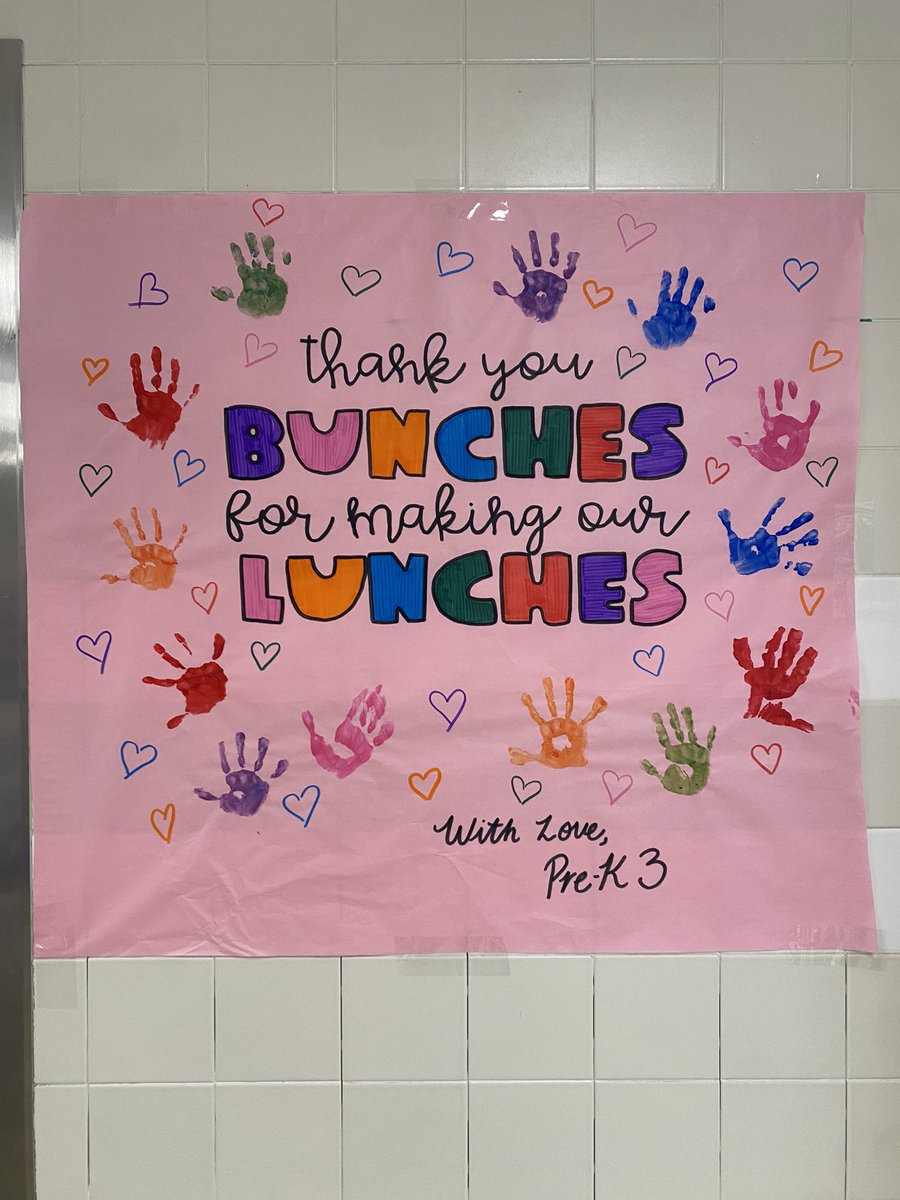 thank you
BUNCHES
for making our
LUNCHES
With Love,
Pre-K 3